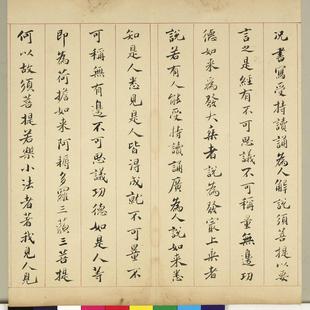 况書寫受持讀誦為人解說須菩提以要
言之是經有不可思議不可稱量無邊功
德如來為發大乘者說為發最上乘者
說若有人能受持讀誦廣為人說如來悉
知是人悉見是人皆得成就不可量不
可稱無有邊不可思議功德如是人等
即為荷擔如來阿耨多羅三藐三菩提
何以故須菩提若樂小法者著我見人見